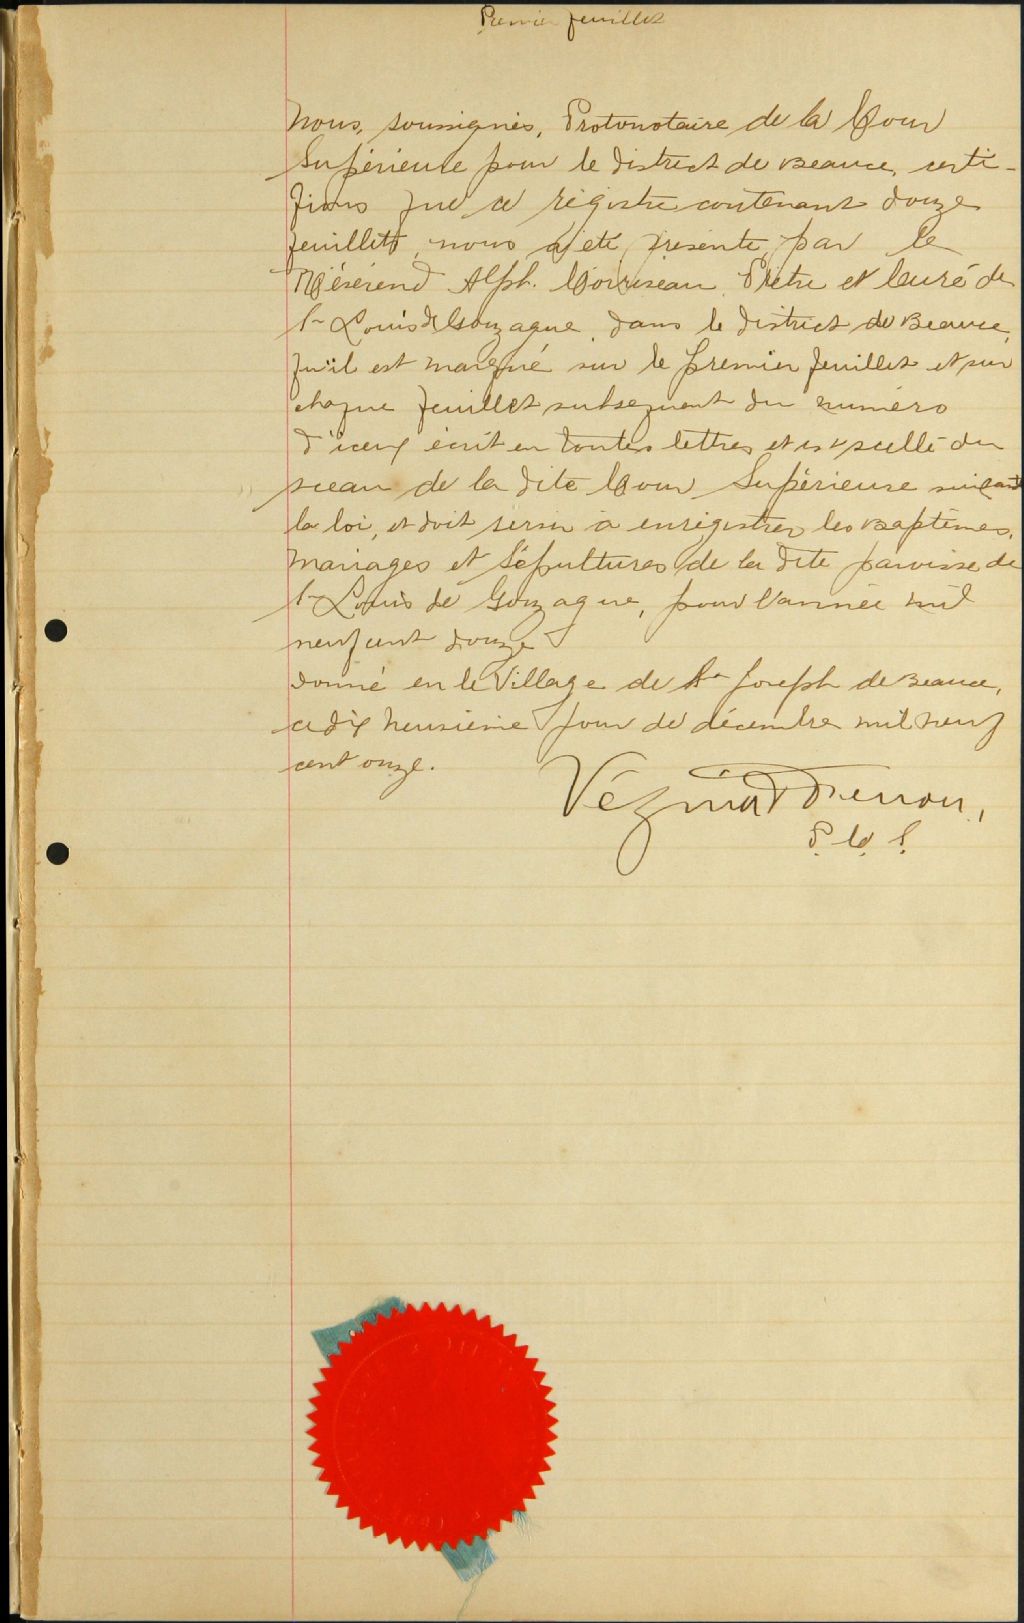 Premier feuillet
Nous, soussignés, Protonotaire de la Cour
Supérieure pour le district de Beauce, certi-
fions que ce régistre contenant douze
feuillets, nous a été présenté par le
Révérend Alph. Morisseau Prêtre et Curé de
St Louis de Gonzague dans le district de Beauce,
qu'il est marqué sur le premier feuillet et sur
chaque feuillet subsequent du numéro
d'iceux écrit en toutes lettres et est scellé du
sceau de la dite Cour Supérieure suivant
la loi, et doit servir à enrégistrer les Baptêmes,
Mariages et Sépultures de la dite paroisse de
St Louis de Gonzague, pour l'année mil
neuf cent douze
Donné en le Village de St Joseph de Beauce,
ce dix neuvième jour de décembre mil neuf
cent onze.
Vézina
P. C. S.